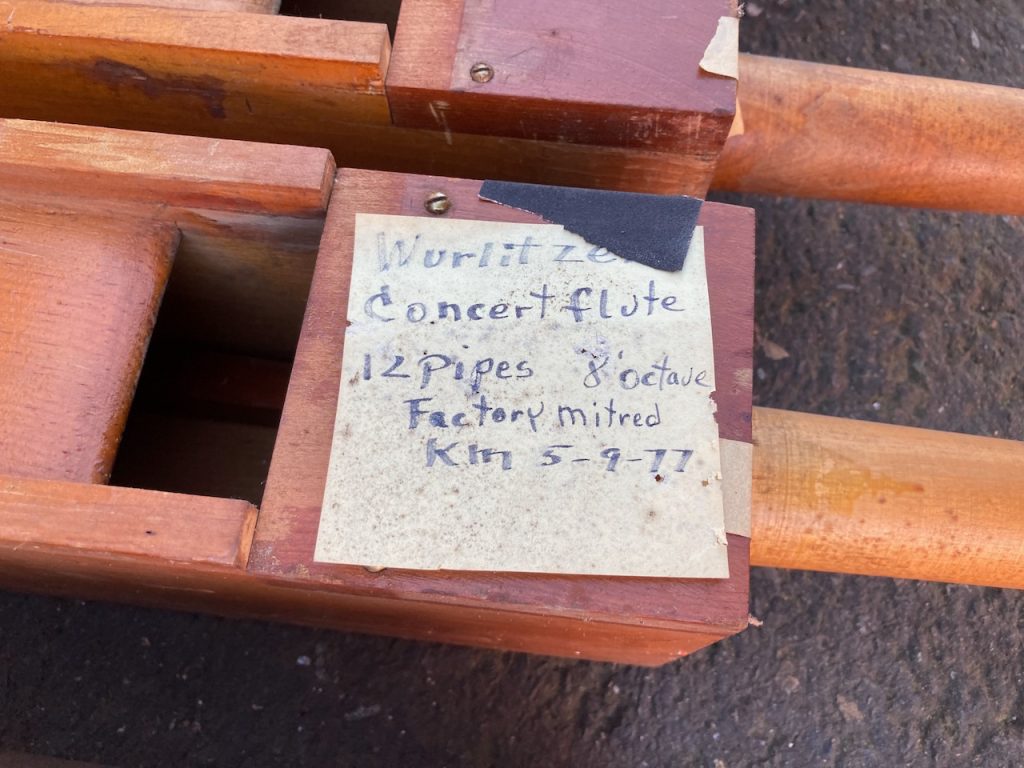 Wurlitzer
Concert flute
12 pipes 8' octave
Factory mitred
KM 5-9-77